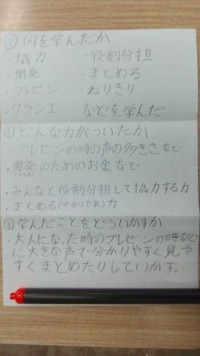 ①何を学んだか
・協力 ・役割分担
・開発 ・まとめる
・プレゼン ねりきり
クランエ などを学んだ
②どんな力がついたか
・プレゼンの時の声の大きさなど
・開発のためのお金など
・みんなと役割分担して協力する力
・まとめる(分かりやすく)力
③学んだことをどういかすか
・大人になった時のプレゼンの時などに大きな声で分かりやすく見やすくまとめたりしていかす。